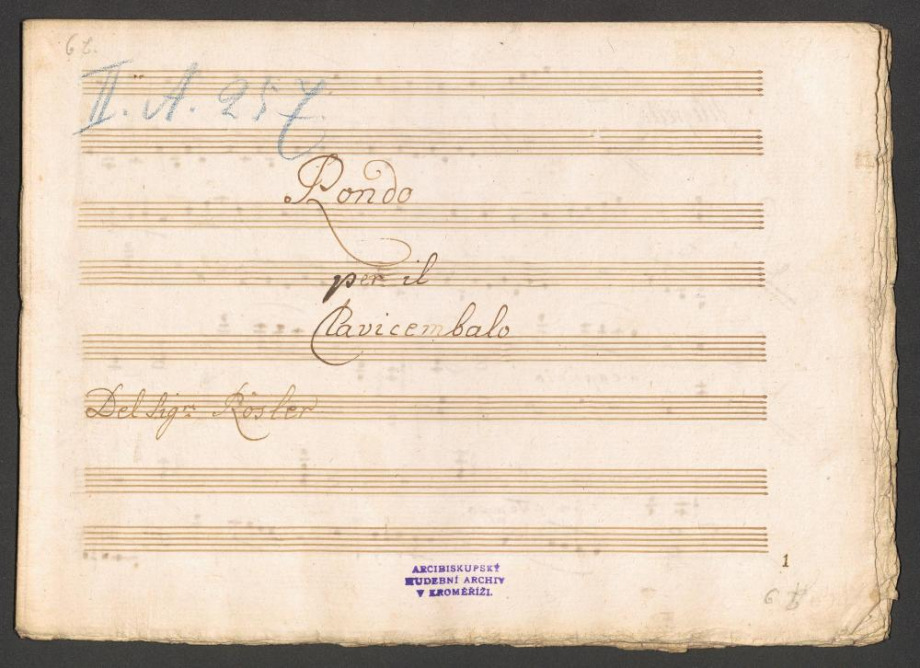 6 t.
II. A. 257.
Rondo
per il
Clavicembalo
Del Sigre Rösler
1
ARCIBISKUPSKÝ
HUDEBNÍ ARCHIV
V KROMĚŘÍŽI.
6